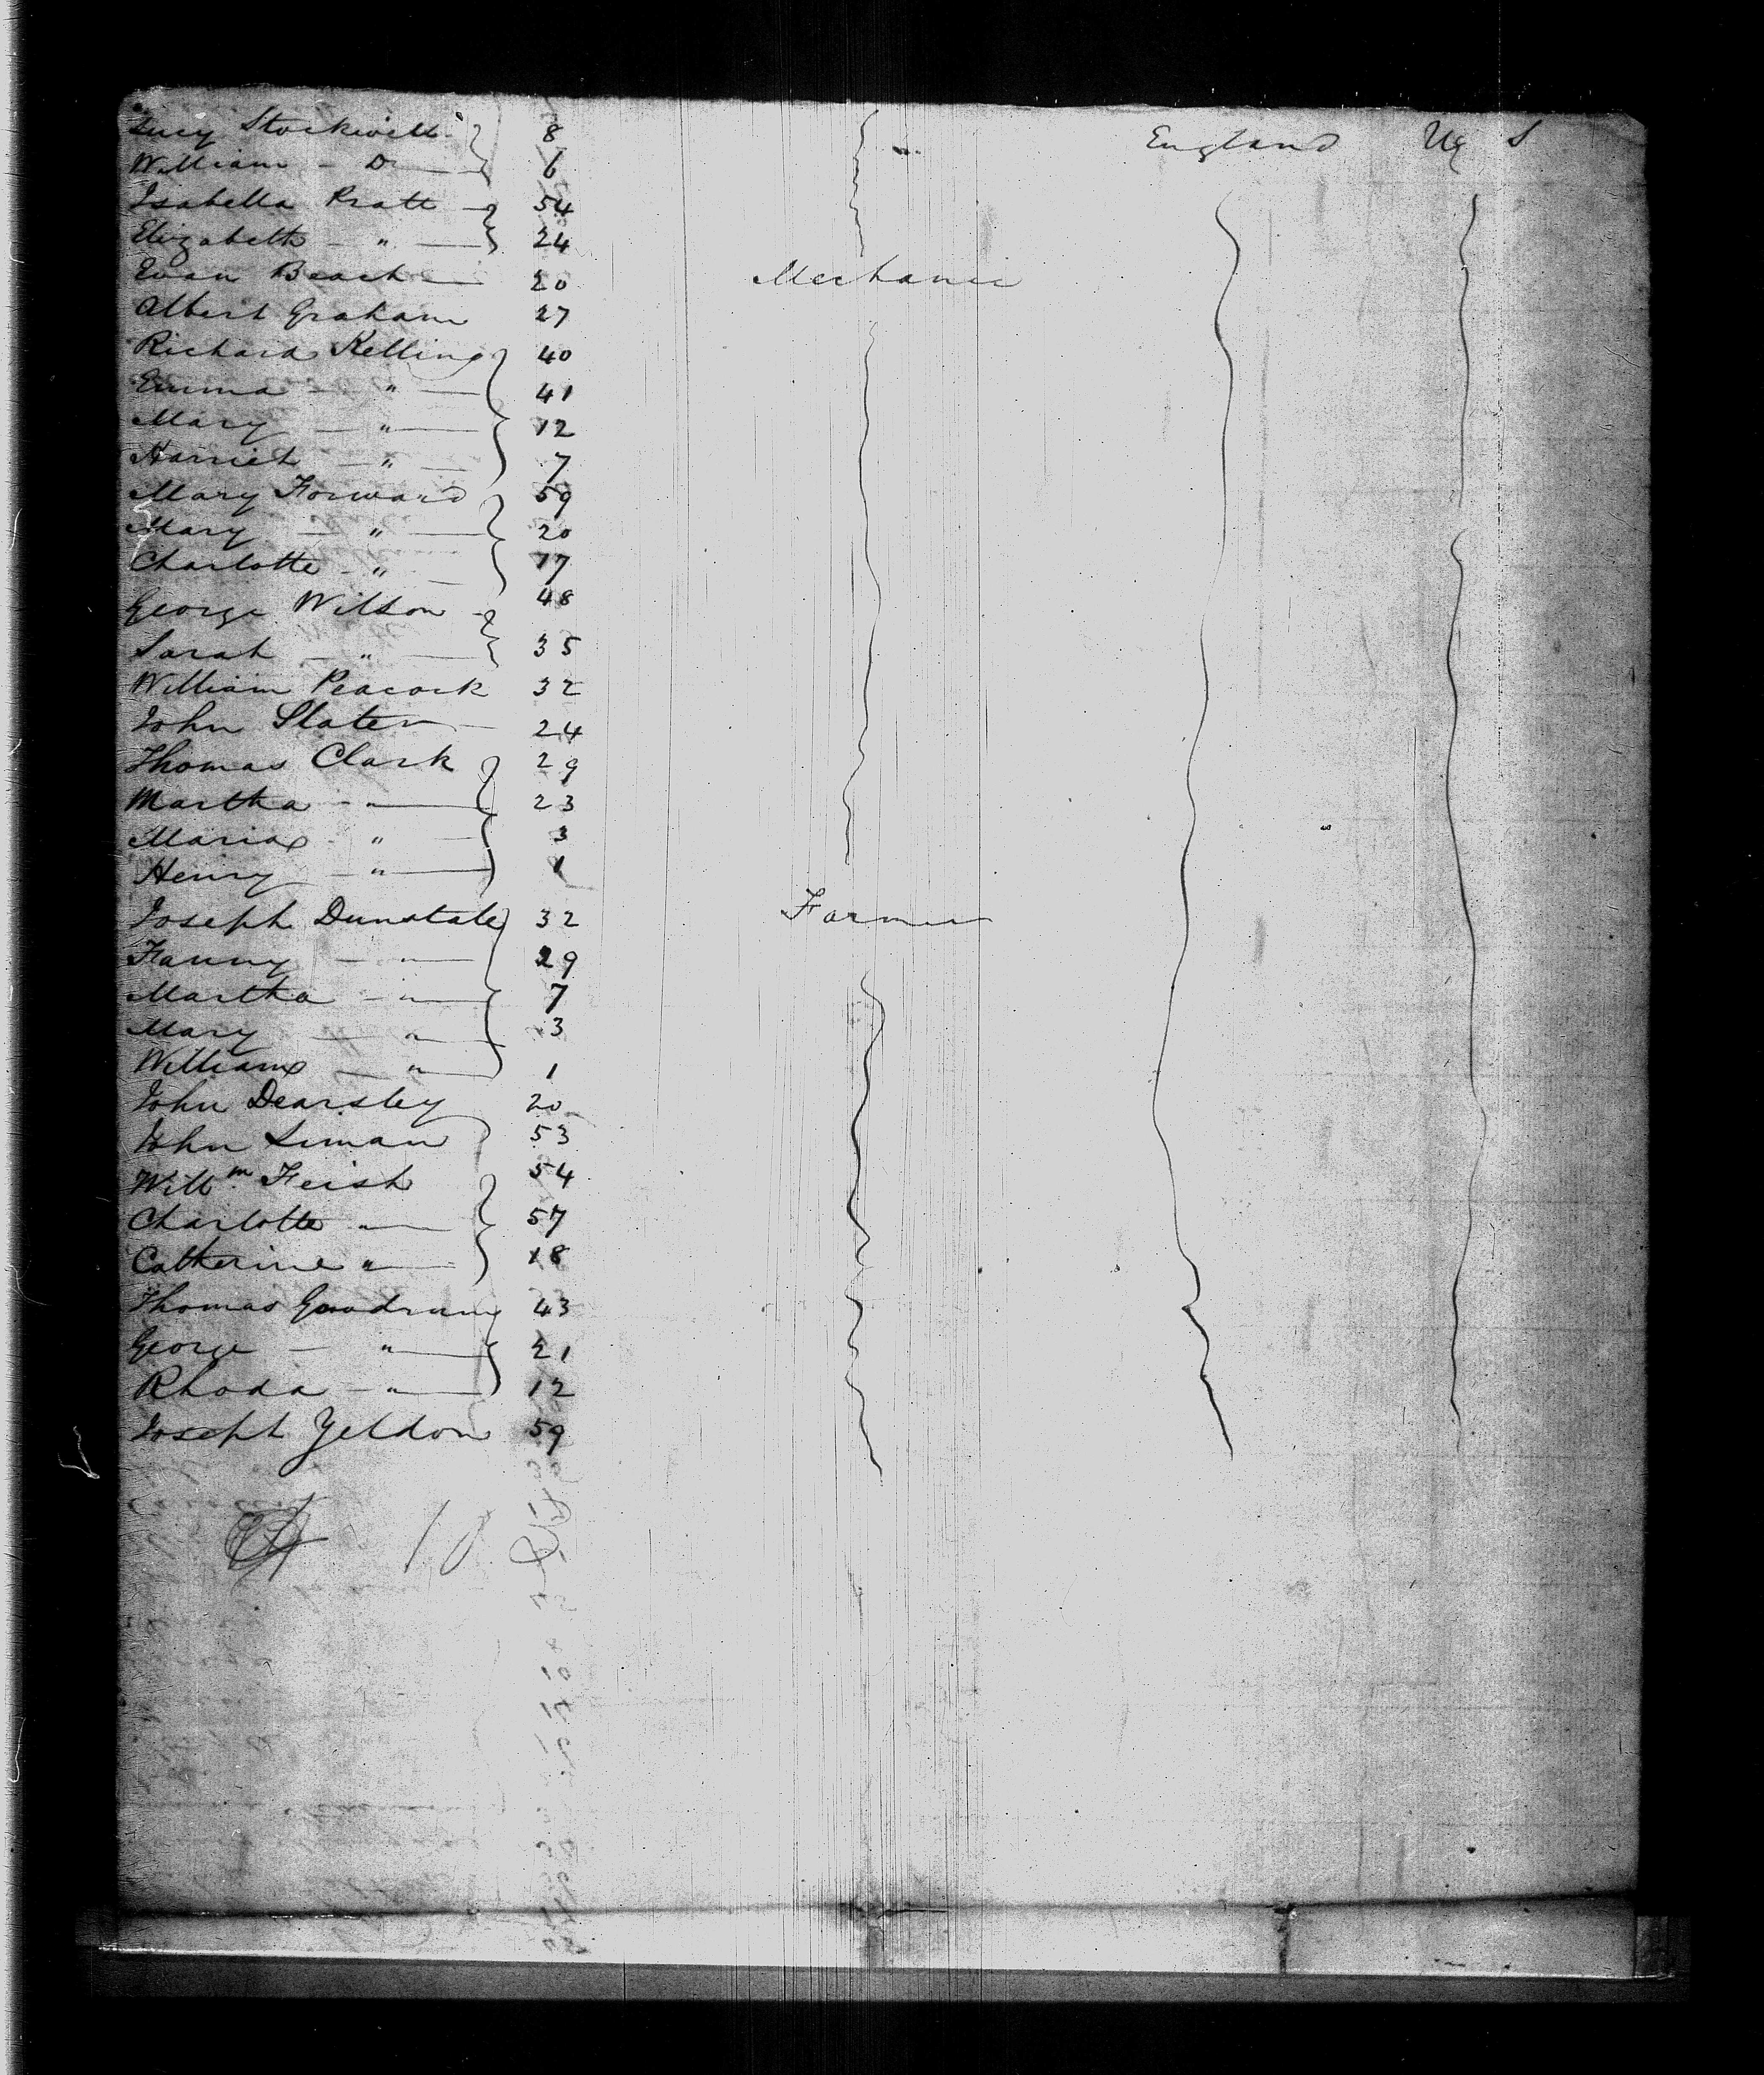 Lucy Stockwell 8 England U S
William - Do 6
Isabella Pratt 54
Elizabeth - " 24
Evan Beach 20 Mechanic
Albert Graham 27
Richard Kelling 40
Emma - " 41
Mary - " 12
Harriet - " 7
Mary Forward 59
Mary - " 20
Charlotte - " 17
George Wilson 48
Sarah - " 35
William Peacock 32
John Slater 24
Thomas Clark 29
Martha - " 23
Maria - " 3
Henry - " 1
Joseph Dunstale 32 Farmer
Fanny - " 29
Martha - " 7
Mary - " 3
William - " 1
John Dearsley 20
John Liman 53
Willm Feish 54
Charlotte " 57
Catherine " 18
Thomas Goodrum 43
George - " 21
Rhoda - " 12
Joseph Yeldon 59
10